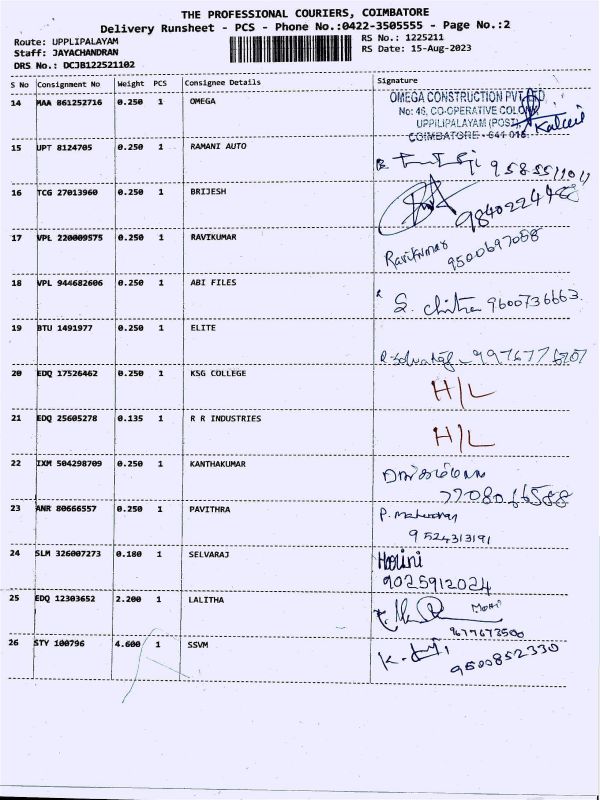 THE PROFESSIONAL COURIERS, COIMBATORE
Delivery Runsheet - PCS - Phone No.:0422-3505555 - Page No.:2
Route: UPPLIPALAYAM RS No.: 1225211
Staff: JAYACHANDRAN RS Date: 15-Aug-2023
DRS No.: DCJB122521102
S No Consignment No Weight PCS Consignee Details Signature
14 MAA 861252716 0.250 1 OMEGA
OMEGA CONSTRUCTION PVT LTD
No: 46, CO-OPERATIVE COLONY
UPPILIPALAYAM (POST)
COIMBATORE - 641 015.
15 UPT 8124705 0.250 1 RAMANI AUTO
16 TCG 27013960 0.250 1 BRIJESH
9840224488
17 VPL 220009575 0.250 1 RAVIKUMAR
Ravikumar
9500697058
18 VPL 944682606 0.250 1 ABI FILES S. Chitra 9600736663
19 BTU 1491977 0.250 1 ELITE
20 EDQ 17526462 0.250 1 KSG COLLEGE H/L
21 EDQ 25605278 0.135 1 R R INDUSTRIES H/L
22 IXM 504298709 0.250 1 KANTHAKUMAR
23 ANR 80666557 0.250 1 PAVITHRA
9524313191
24 SLM 326007273 0.180 1 SELVARAJ Harini
9025912024
25 EDQ 12303652 2.200 1 LALITHA
9677673500
26 STY 100796 4.600 1 SSVM
9500852330